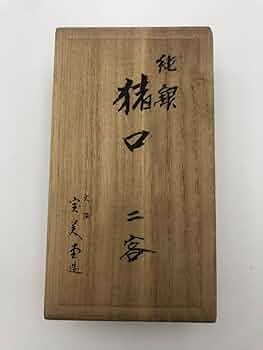 純銀
猪口 二客
大阪
宝美堂造